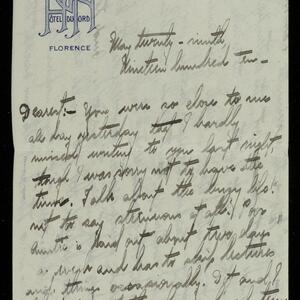 HÔTEL D'OXFORD
FLORENCE
May twenty-ninth
Nineteen hundred ten-
Dearest:- You were so close to me
all day yesterday that I hardly
missed writing to you last night
though I was sorry not to have the
time. Talk about the busy life
not to say strenuous at all! Poor
Auntie is laid out about two days
a week and has to skip lectures
and things occasionally. It and I